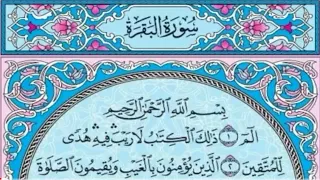 سُورَةُ البَقَرَةِ
بِسْمِ اللَّهِ الرَّحْمَٰنِ الرَّحِيمِ
الٓمٓ ۝١ ذَٰلِكَ الْكِتَٰبُ لَا رَيْبَ ۛ فِيهِ ۛ هُدًى
لِّلْمُتَّقِينَ ۝٢ الَّذِينَ يُؤْمِنُونَ بِالْغَيْبِ وَيُقِيمُونَ الصَّلَوٰةَ